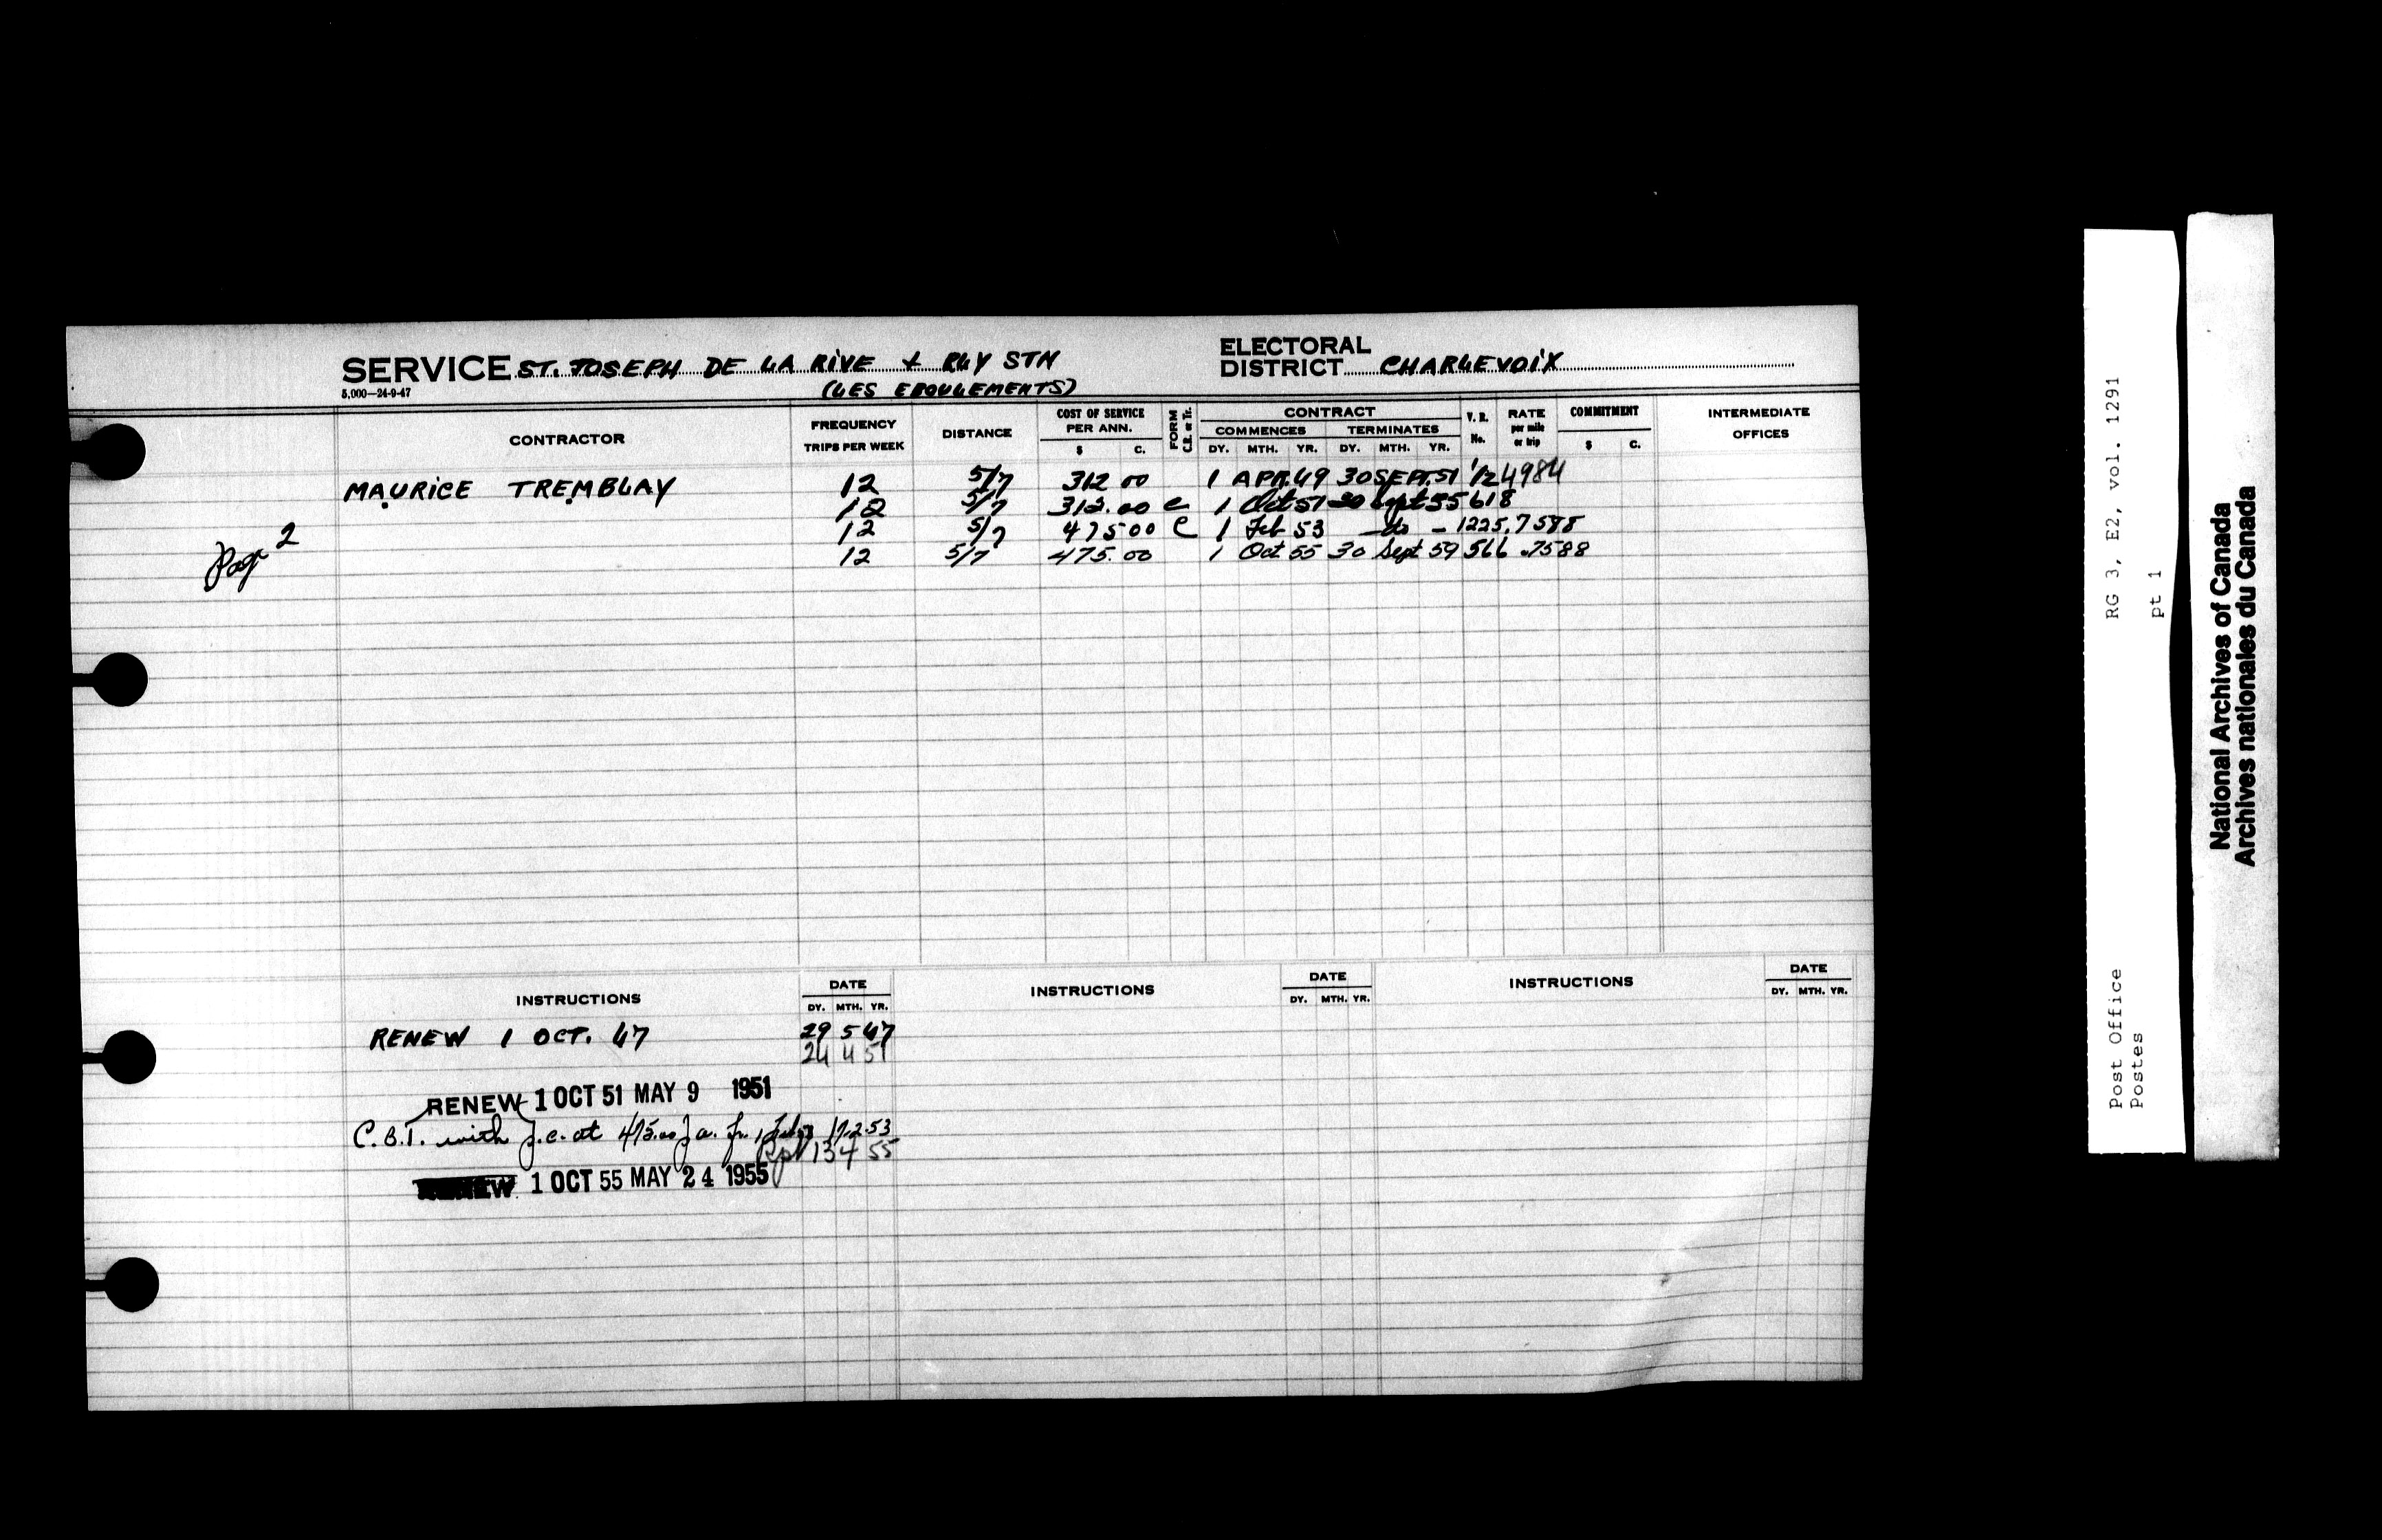 SERVICE ST. JOSEPH DE LA RIVE & RLY STN
(LES EBOULEMENTS)
5,000—24-9-47
ELECTORAL DISTRICT CHARLEVOIX
CONTRACTOR FREQUENCY TRIPS PER WEEK DISTANCE COST OF SERVICE PER ANN. $ C. FORM C.R. or Tr. CONTRACT COMMENCES DY. MTH. YR. TERMINATES DY. MTH. YR. V. R. No. RATE per mile or trip COMMITMENT $ C. INTERMEDIATE OFFICES
MAURICE TREMBLAY 12 5/7 312 00 1 APR. 49 30 SEPT. 51 1/2 4984
12 5/7 312.00 C 1 Oct 51 30 Sept 55 618
12 5/7 475 00 C 1 Feb 53 - do - 1225 .7588
12 5/7 475.00 1 Oct 55 30 Sept 59 566 .7588
Page 2
INSTRUCTIONS DATE DY. MTH. YR. INSTRUCTIONS DATE DY. MTH. YR. INSTRUCTIONS DATE DY. MTH. YR.
RENEW 1 OCT. 47 29 5 47
24 4 51
RENEW 1 OCT 51 MAY 9 1951
C.B.T. with p.c. at 475.00 p a. fr. 1 Feb 17-2-53
Rpt 13 4 55
RENEW 1 OCT 55 MAY 24 1955
RG 3, E2, vol. 1291
pt 1
Post Office
Postes
National Archives of Canada
Archives nationales du Canada